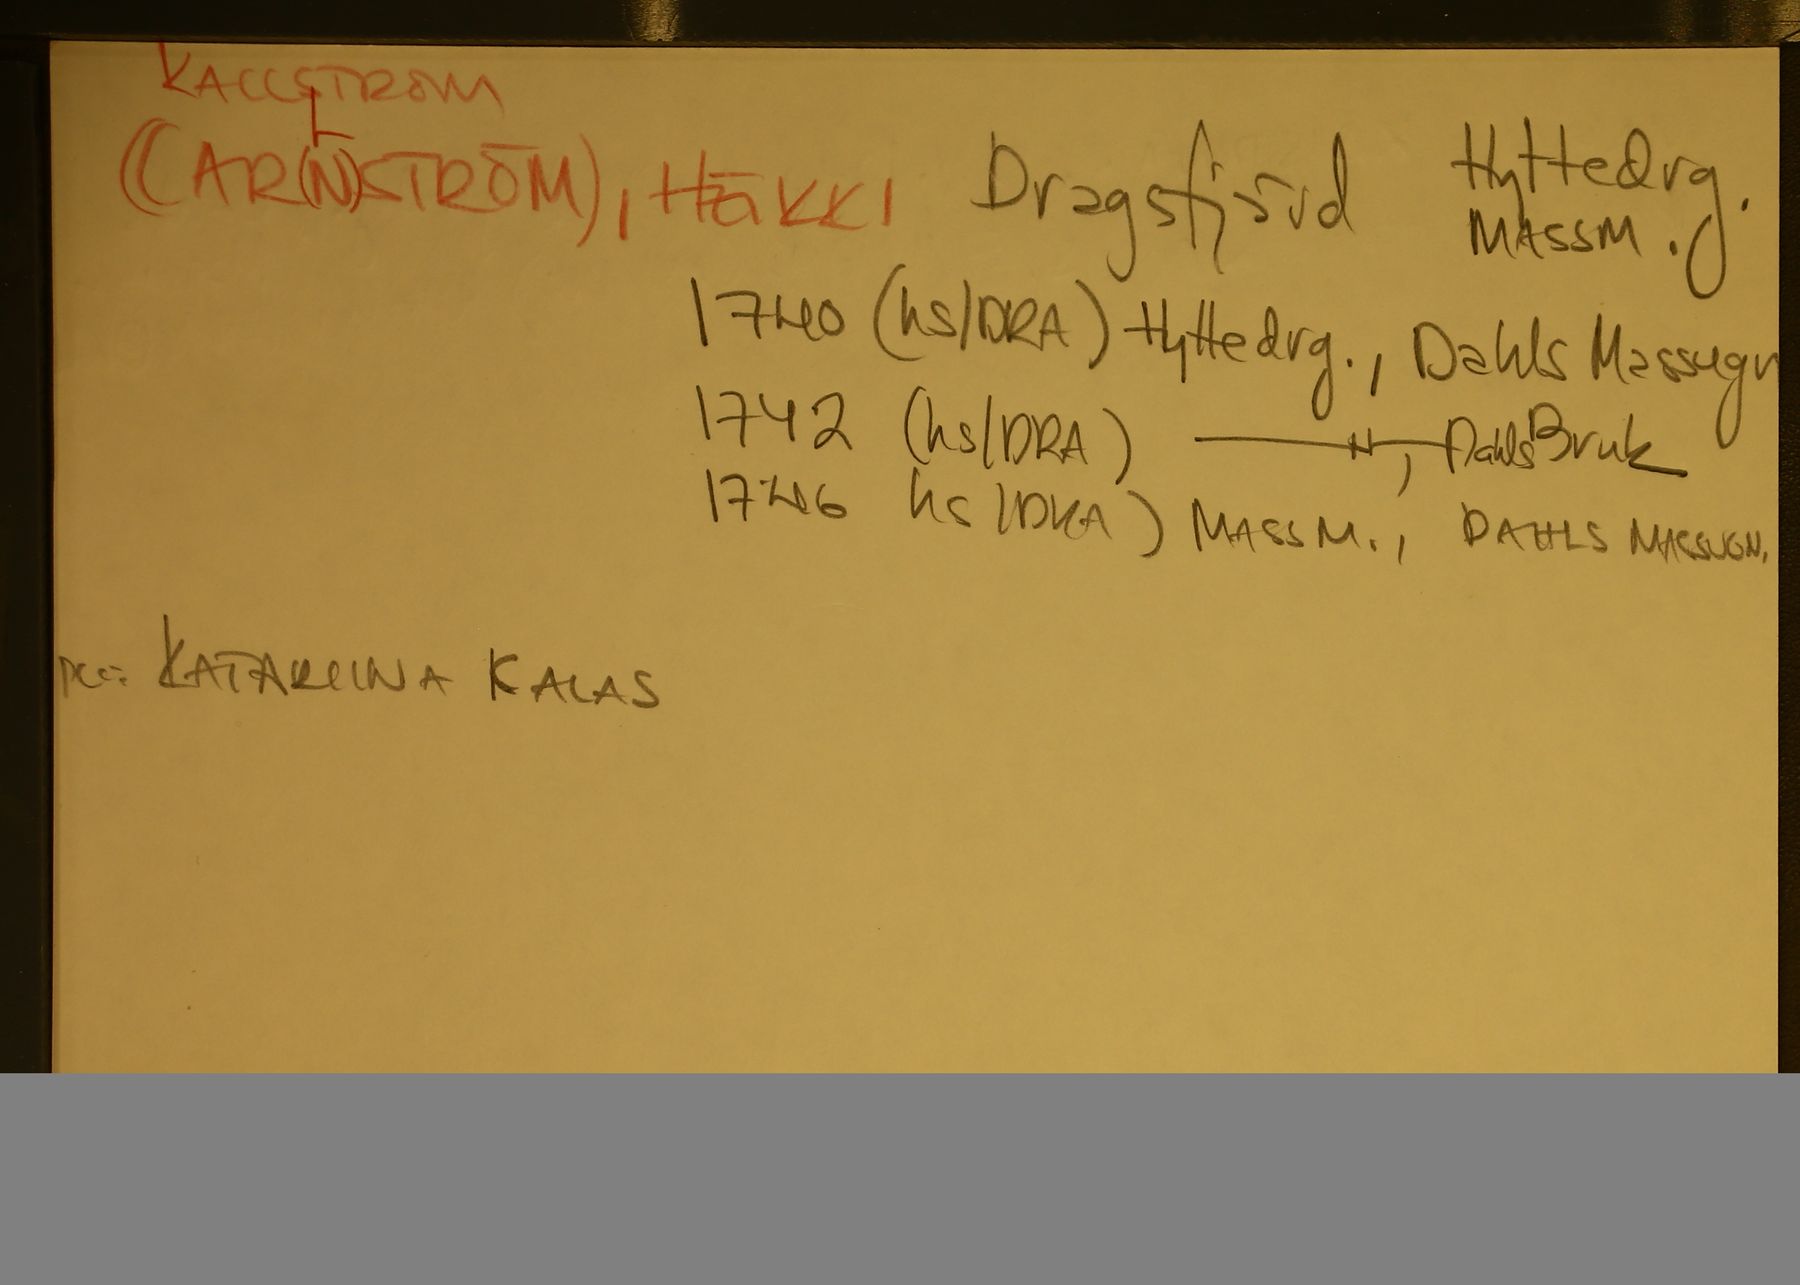 KALLSTRÖM
(CAR(N)STRÖM), Häkki Dragsfjärd Hyttedrg.
L
MASSM.
1740 (hs/DRA) Hyttedrg., Dahls Massugn
1742 (hs/DRA) —〃—, Dahls Bruk
1746 hs/DRA) MASSM., DAHLS MASSUGN.
KATARIINA KALAS